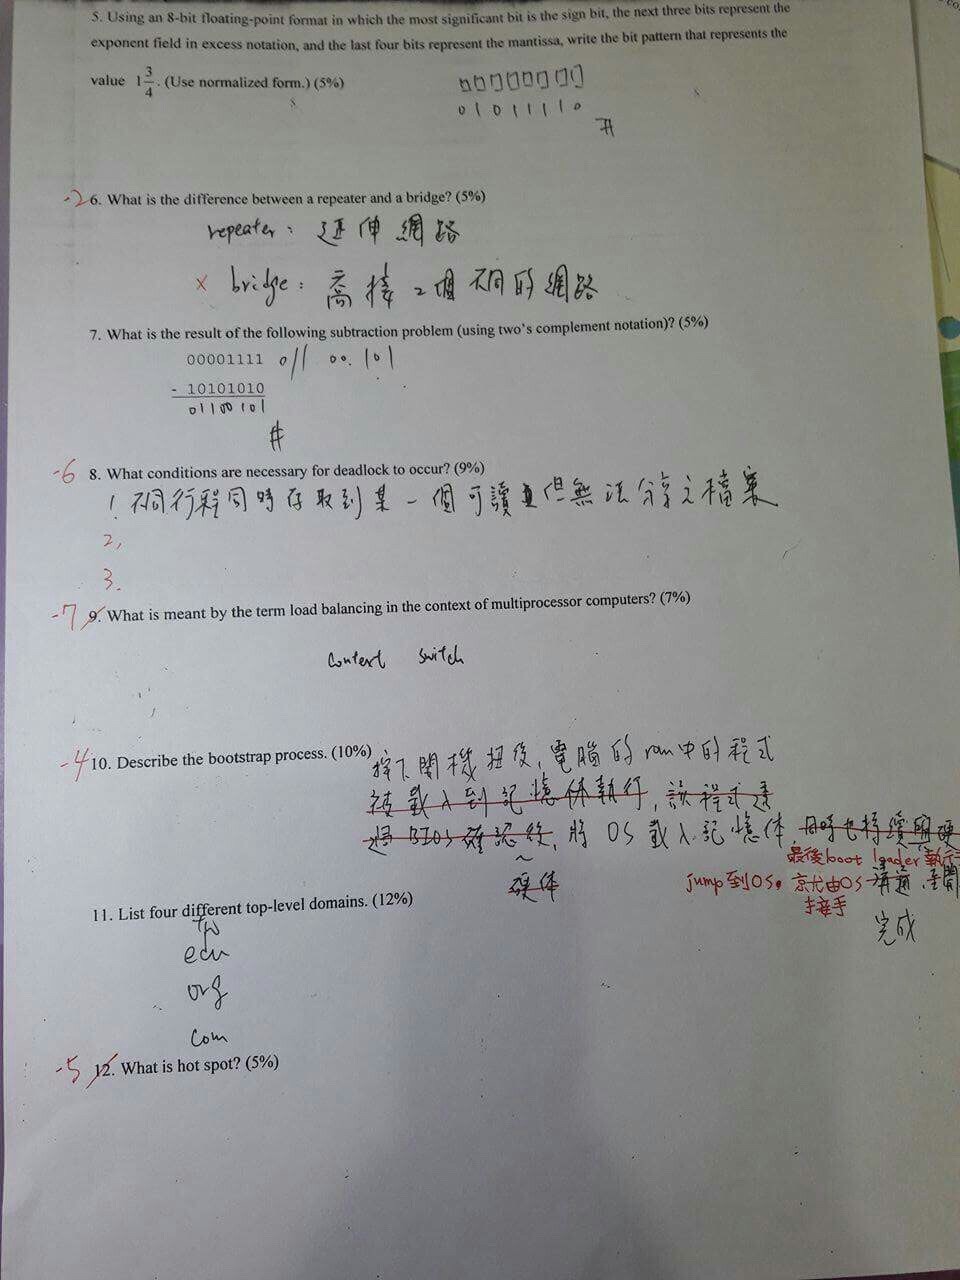 5. Using an 8-bit floating-point format in which the most significant bit is the sign bit, the next three bits represent the
exponent field in excess notation, and the last four bits represent the mantissa, write the bit pattern that represents the
value 1 3/4. (Use normalized form.) (5%)
0 1 0 1 1 1 1 0
-2 6. What is the difference between a repeater and a bridge? (5%)
repeater: 延伸網路
× bridge: 喬接2個不同的網路
7. What is the result of the following subtraction problem (using two's complement notation)? (5%)
00001111 011 00.101
- 10101010
01100101
#
-6 8. What conditions are necessary for deadlock to occur? (9%)
1. 不同行程同時存取到某一個可讀但無法分享之檔案
2,
3.
-7 9. What is meant by the term load balancing in the context of multiprocessor computers? (7%)
context switch
-4 10. Describe the bootstrap process. (10%) 按下開機扭後,電腦的rom中的程式
被載入到記憶体執行,該程式透
過BIOS確認後,將OS載入記憶体,同時也持續與硬
硬体
最後boot loader執行
jump到OS。就由OS 溝通,
接手
完成
11. List four different top-level domains. (12%)
tw
edu
org
com
-5 12. What is hot spot? (5%)